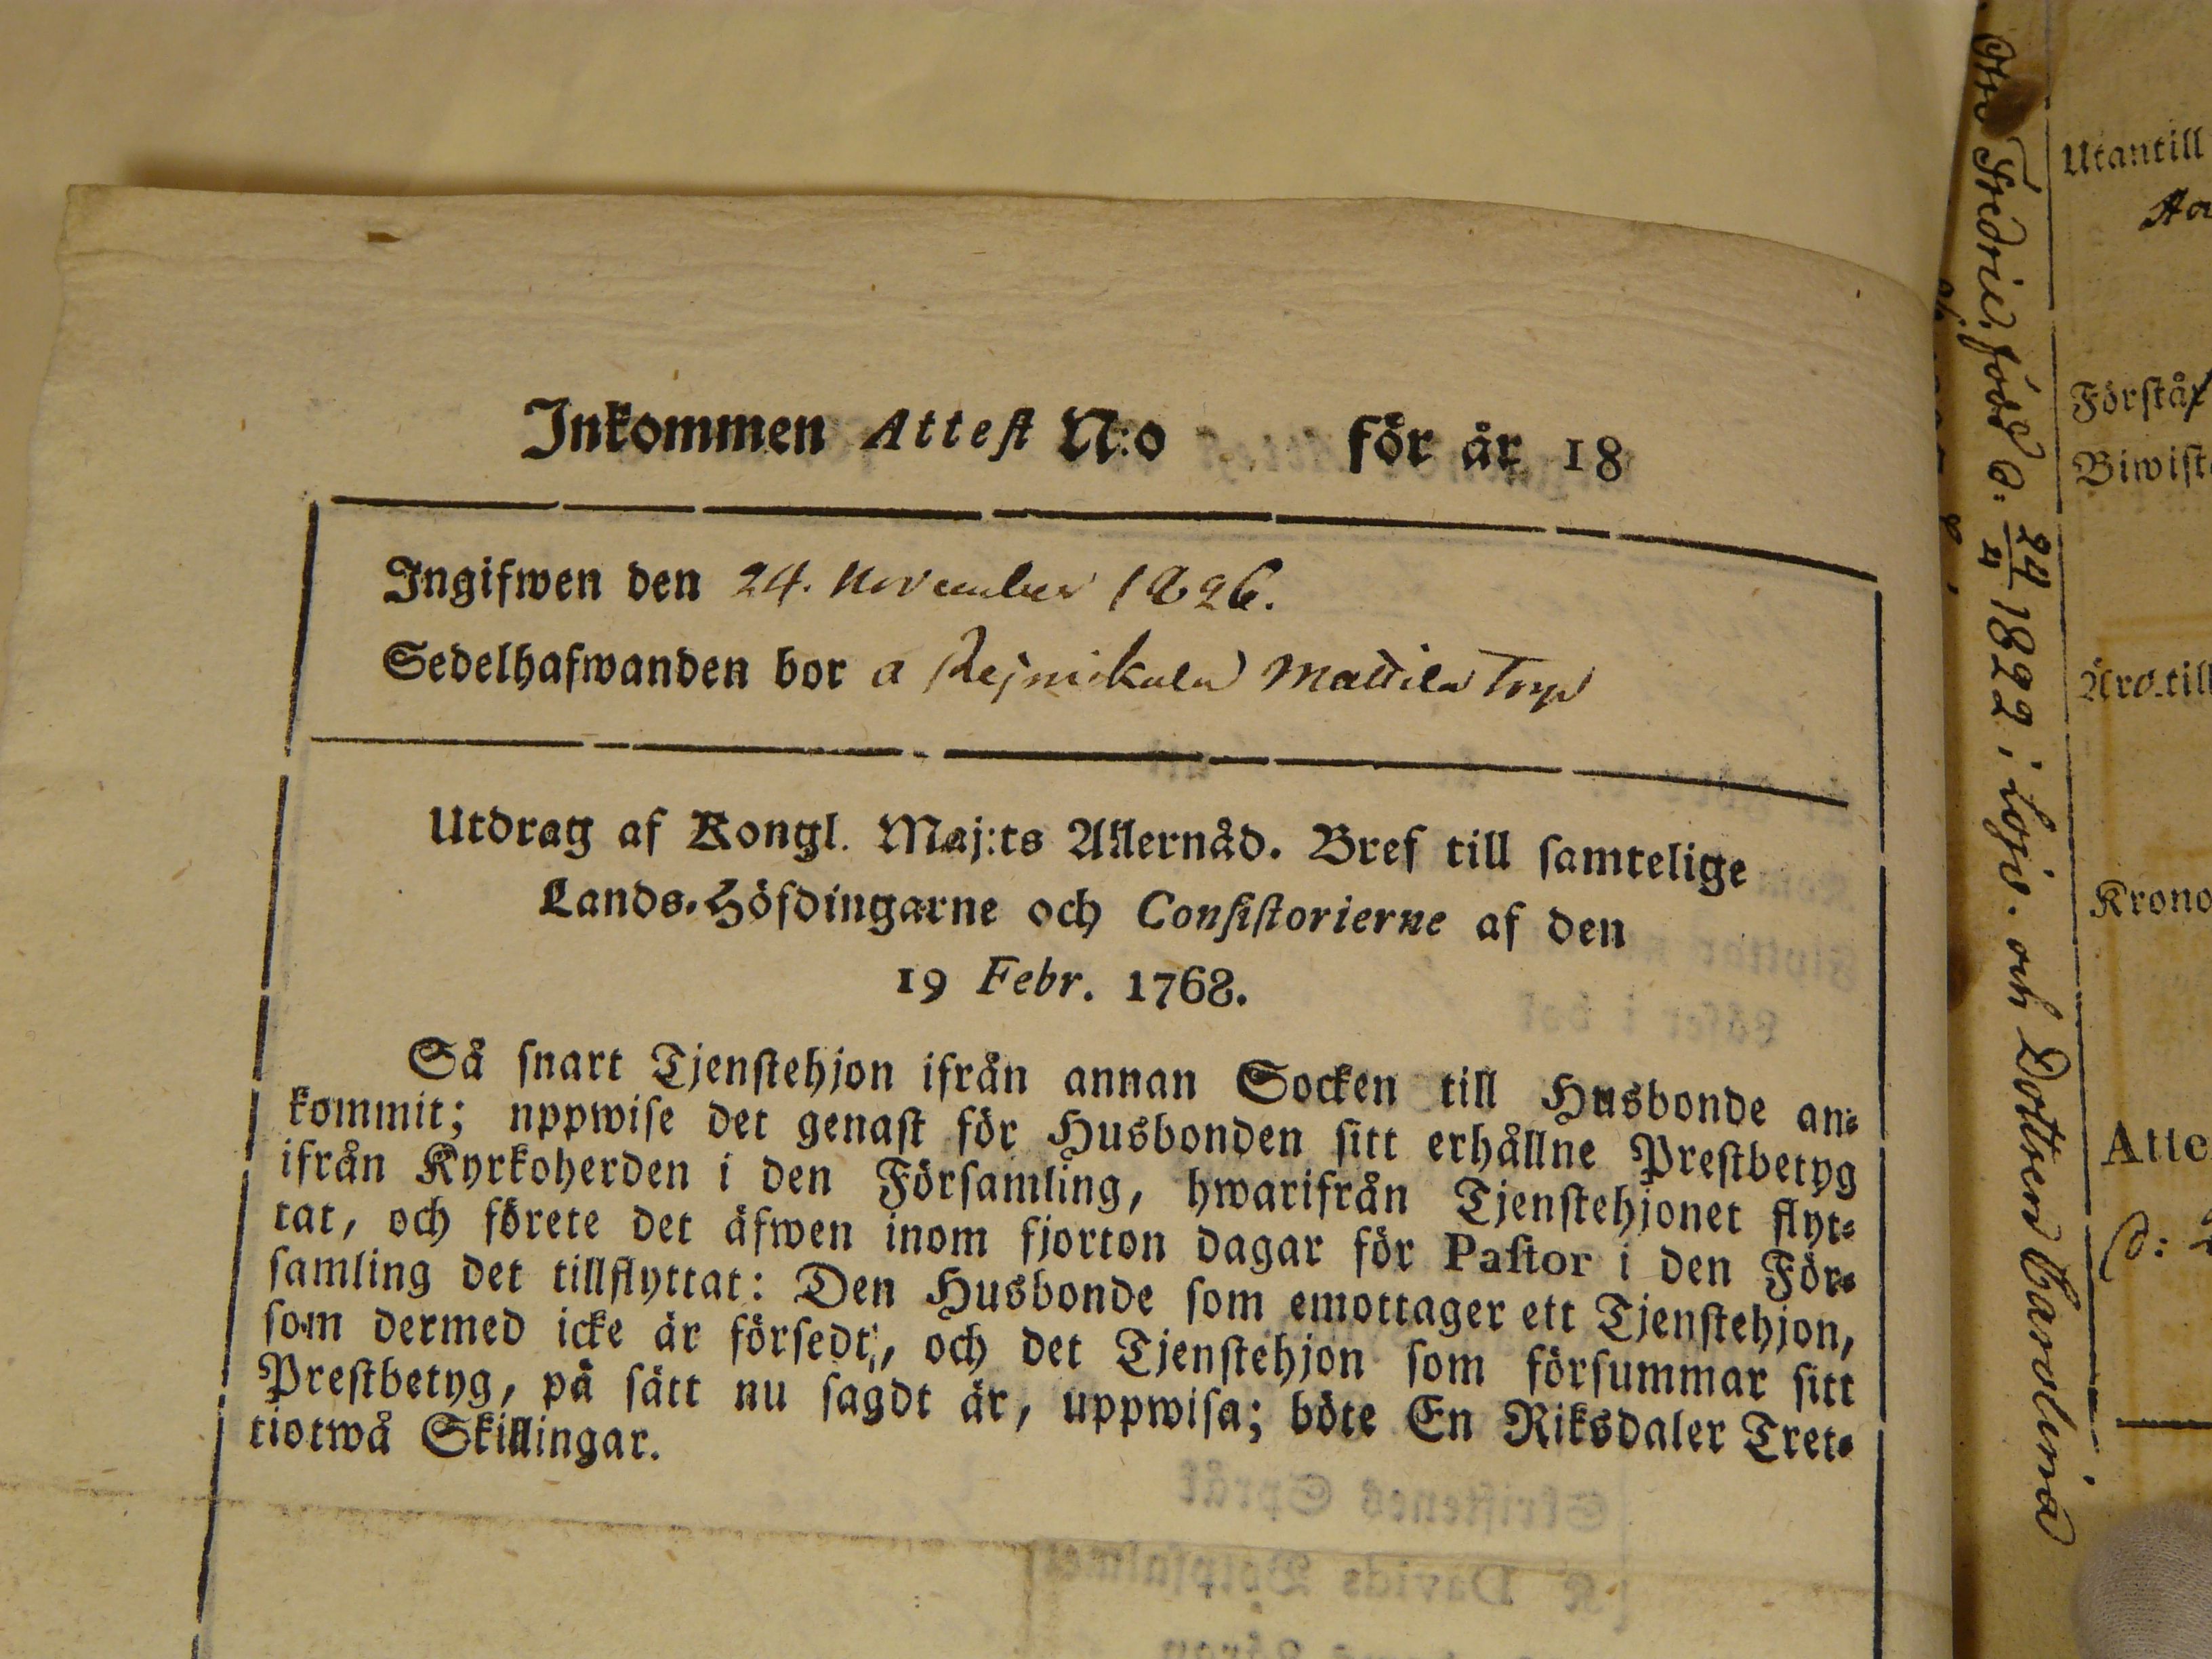 Inkommen Attest N:o för år 18
Ingifwen den 24. November 1826.
Sedelhafwanden bor a Mattila Torp
Utdrag af Kongl. Maj:ts Allernåd. Bref till samtelige
Lands-Höfdingarne och Consistorierne af den
19 Febr. 1768.
Så snart Tjenstehjon ifrån annan Socken till Husbonde an-
kommit; nppwise det genast för Husbonden sitt erhållne Prestbetyg
ifrån Kyrkoherden i den Församling, hwarifrån Tjenstehjonet flyt-
tat, och förete det äfwen inom fjorton dagar för Pastor i den För-
samling det tillflyttat: Den Husbonde som emottager ett Tjenstehjon,
som dermed icke är försedt, och det Tjenstehjon som försummar sitt
Prestbetyg, på sätt nu sagdt är, uppwisa; böte En Riksdaler Tret-
tiotwå Skillingar.
Fredric, född d: 24/4 1822 i Lojo. och Dottren Carolina
Utantill
Förstå
Biwist
Äro till
Krono
Atte